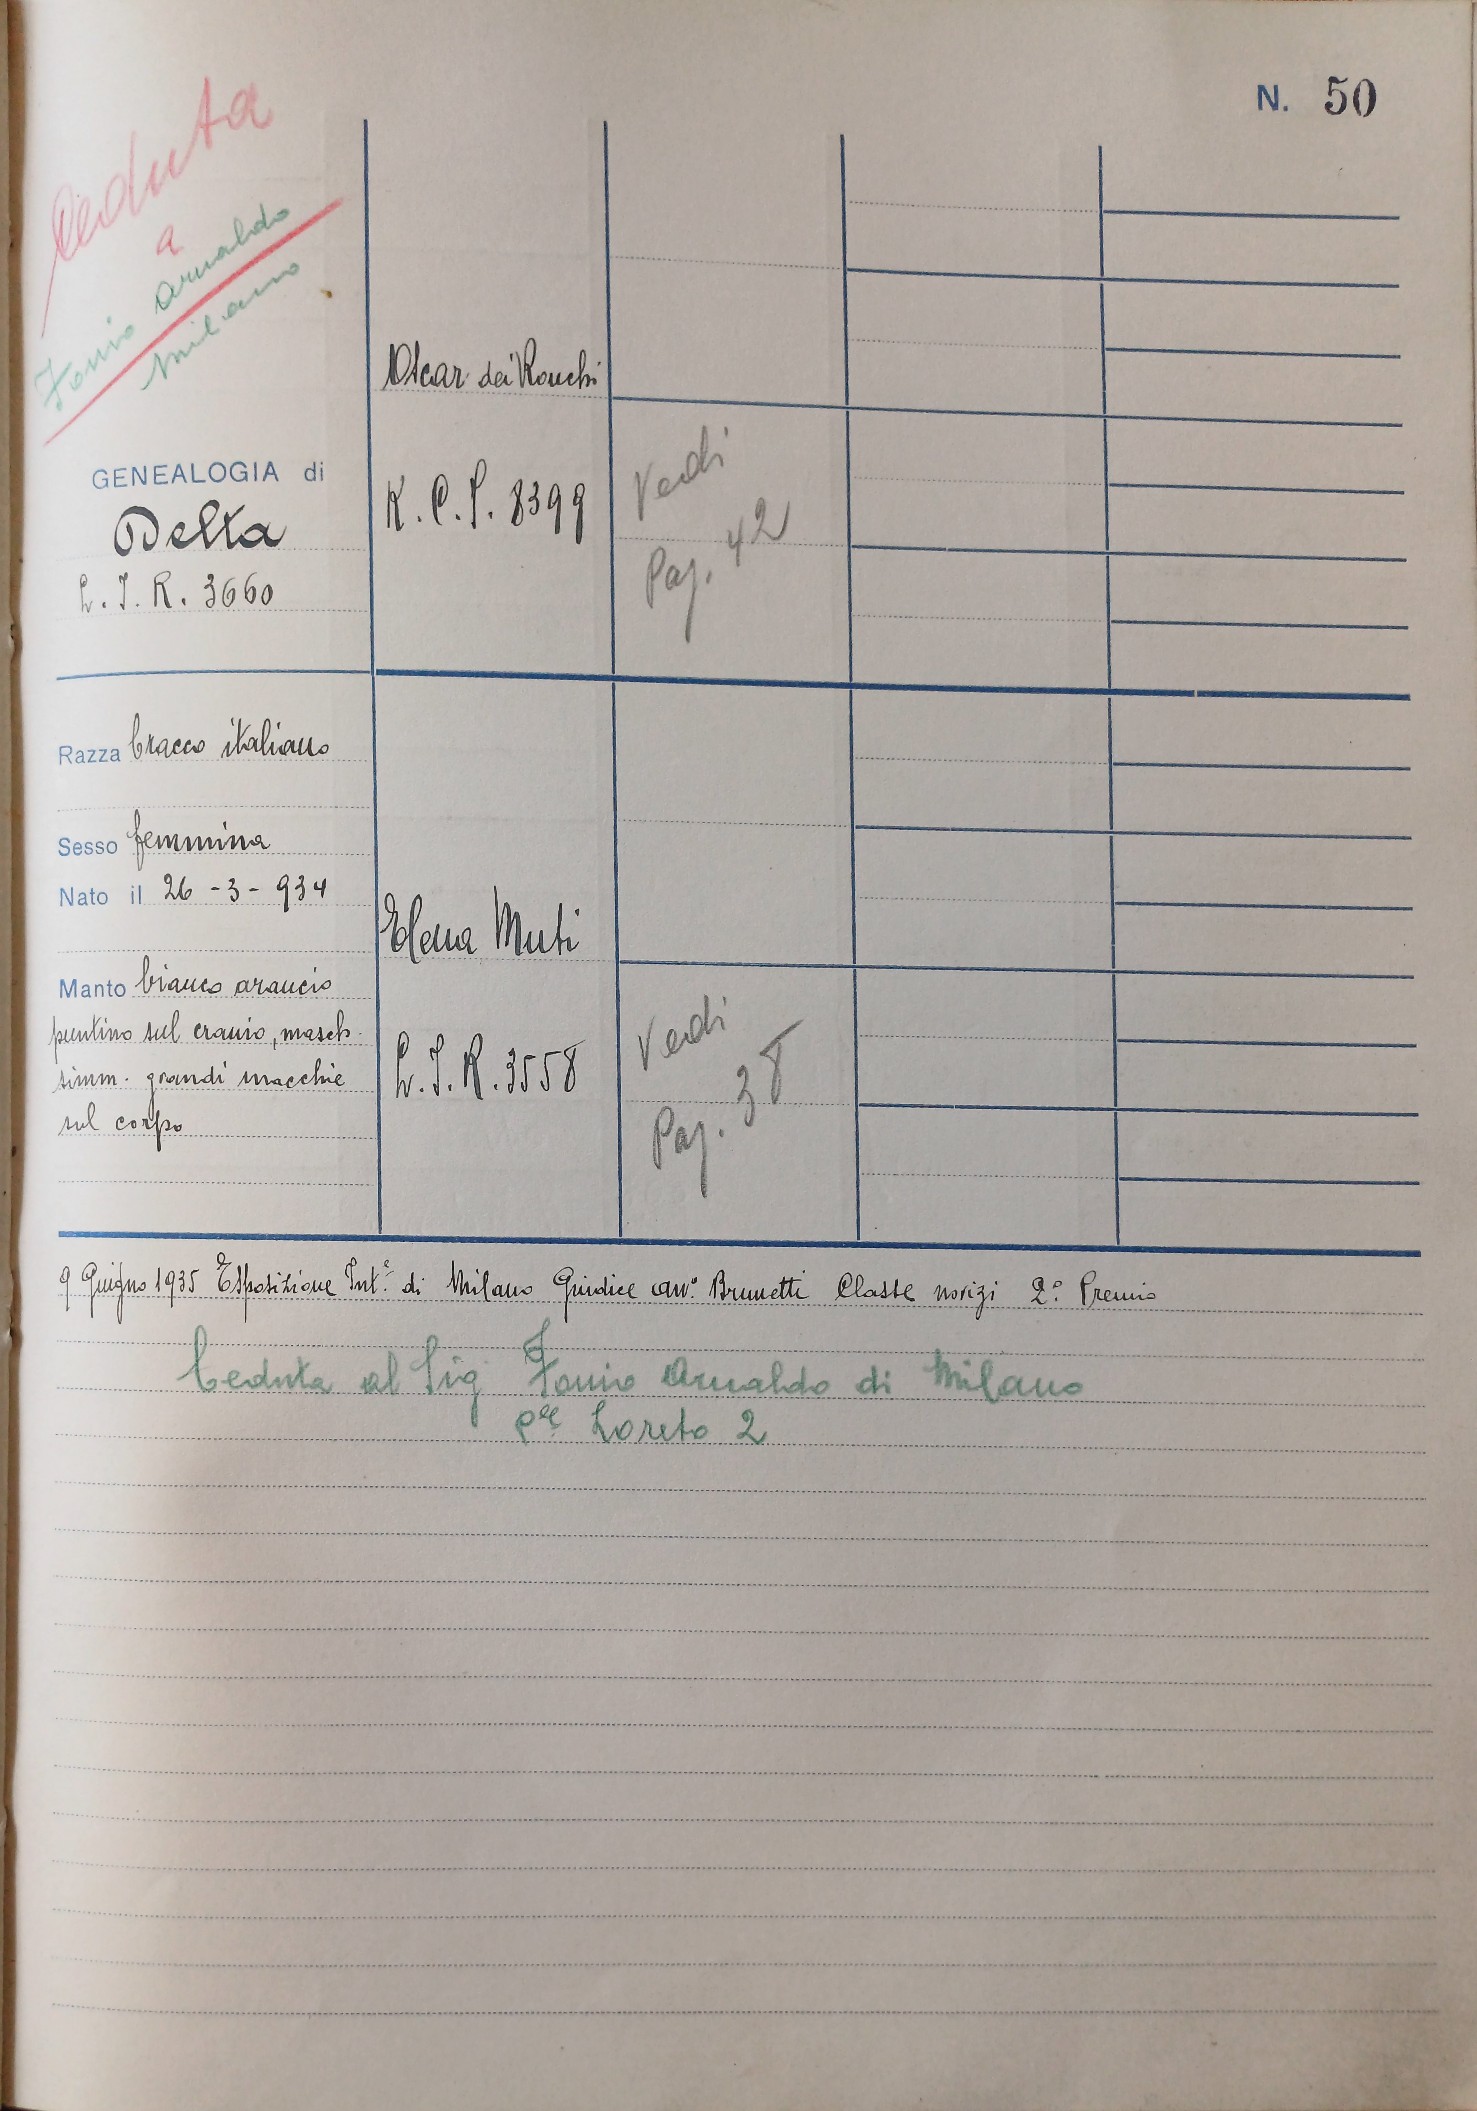 N. 50
Ceduta
a
Fonio Arnaldo
Milano
GENEALOGIA di
Delta
L. I. R. 3660
Razza bracco italiano
Sesso femmina
Nato il 26 - 3 - 934
Manto bianco arancio
puntino sul cranio, masch.
simm. grandi macchie
sul corpo
Oscar dei Ronchi
K. C. I. 8399
Vedi
Pag. 42
Elena Muti
L. I. R. 3558
Vedi
Pag. 38
9 Giugno 1935 Esposizione Int.e di Milano Giudice avv.o Brunetti Classe novizi 2.o Premio
Ceduta al Sig Fonio Arnaldo di Milano
P.le Loreto 2